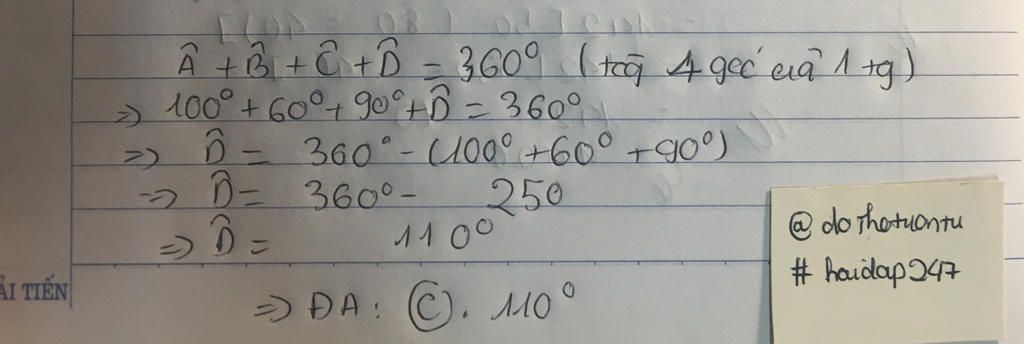 Â + B̂ + Ĉ + D̂ = 360° (tcg 4 góc của 1 tg)
=> 100° + 60° + 90° + D̂ = 360°
=> D̂ = 360° - (100° + 60° + 90°)
=> D̂ = 360° - 250
=> D̂ = 110°
=> ĐA: C. 110°
@ dothotuontu
# hoidap247
ẢI TIẾN